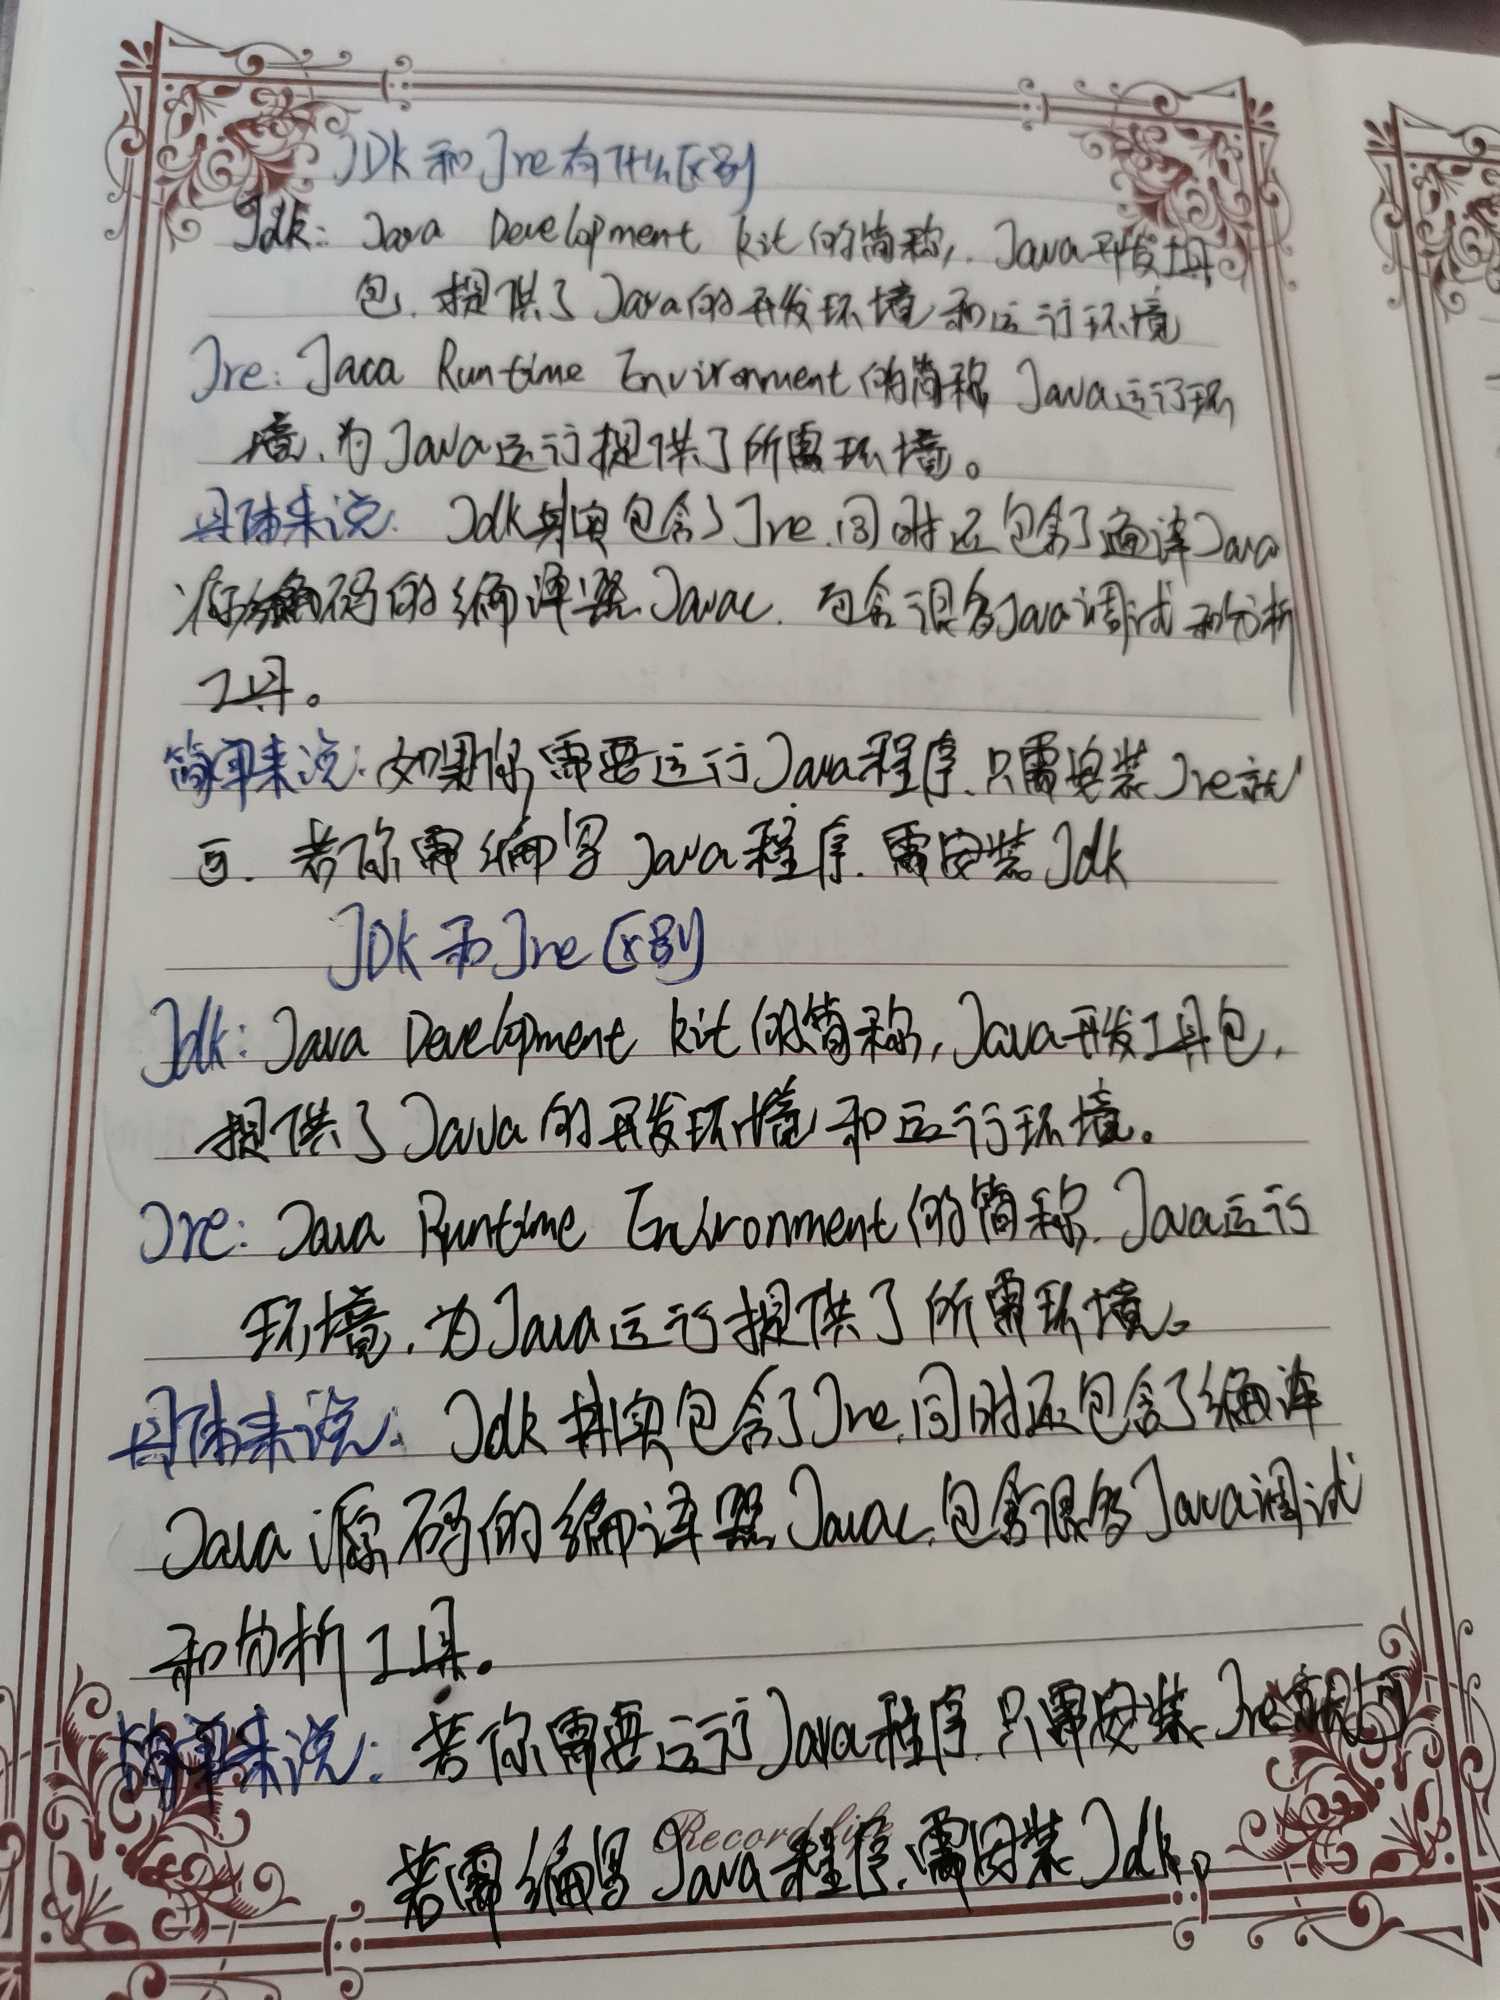 JDK和Jre有什么区别
Jdk: Java Development kit的简称,. Java开发工具
包, 提供了Java的开发环境和运行环境
Jre: Jaca Runtime Environment的简称 Java运行环
境, 为Java运行提供了所需环境。
具体来说: Jdk其实包含了Jre,同时还包含了编译Java
码的编译器Javac. 包含很多Java调试和分析
工具。
简单来说: 如果你需要运行Java程序,只需安装Jre就
可. 若你需编写Java程序.需安装Jdk
JDK和Jre区别
Jdk: Java Development kit的简称,Java开发工具包,
提供了Java的开发环境和运行环境。
Jre: Java Runtime Environment的简称,Java运行
环境,为Java运行提供了所需环境。
具体来说: Jdk其实包含了Jre,同时还包含了编译
Java源码的编译器Javac,包含很多Java调试
和分析工具。
简单来说: 若你需要运行Java程序,只需安装Jre就可
Record life
若需编写Java程序,需安装Jdk。